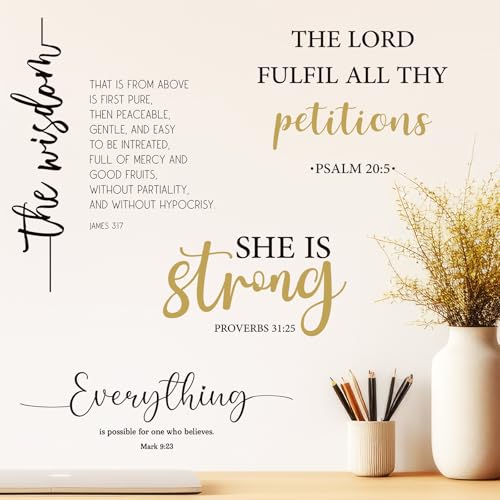 the wisdom
THAT IS FROM ABOVE
IS FIRST PURE,
THEN PEACEABLE,
GENTLE, AND EASY
TO BE INTREATED,
FULL OF MERCY AND
GOOD FRUITS,
WITHOUT PARTIALITY,
AND WITHOUT HYPOCRISY.
JAMES 3:17
THE LORD
FULFIL ALL THY
petitions
•PSALM 20:5•
SHE IS
strong
PROVERBS 31:25
Everything
is possible for one who believes.
Mark 9:23